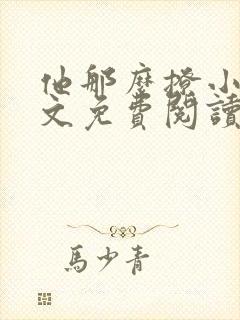 他那麼撩小
文免費閱讀
馬少青